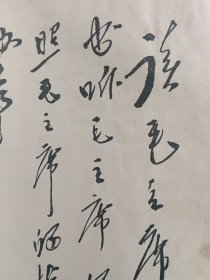 读毛主席
书听毛主席
照毛主席的指